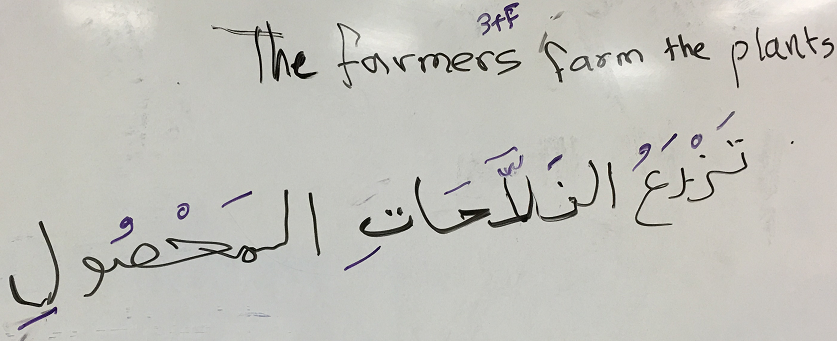 3+F
The farmers farm the plants
تَزْرَعُ الفَلَّاحَاتِ المَحْصُولِ